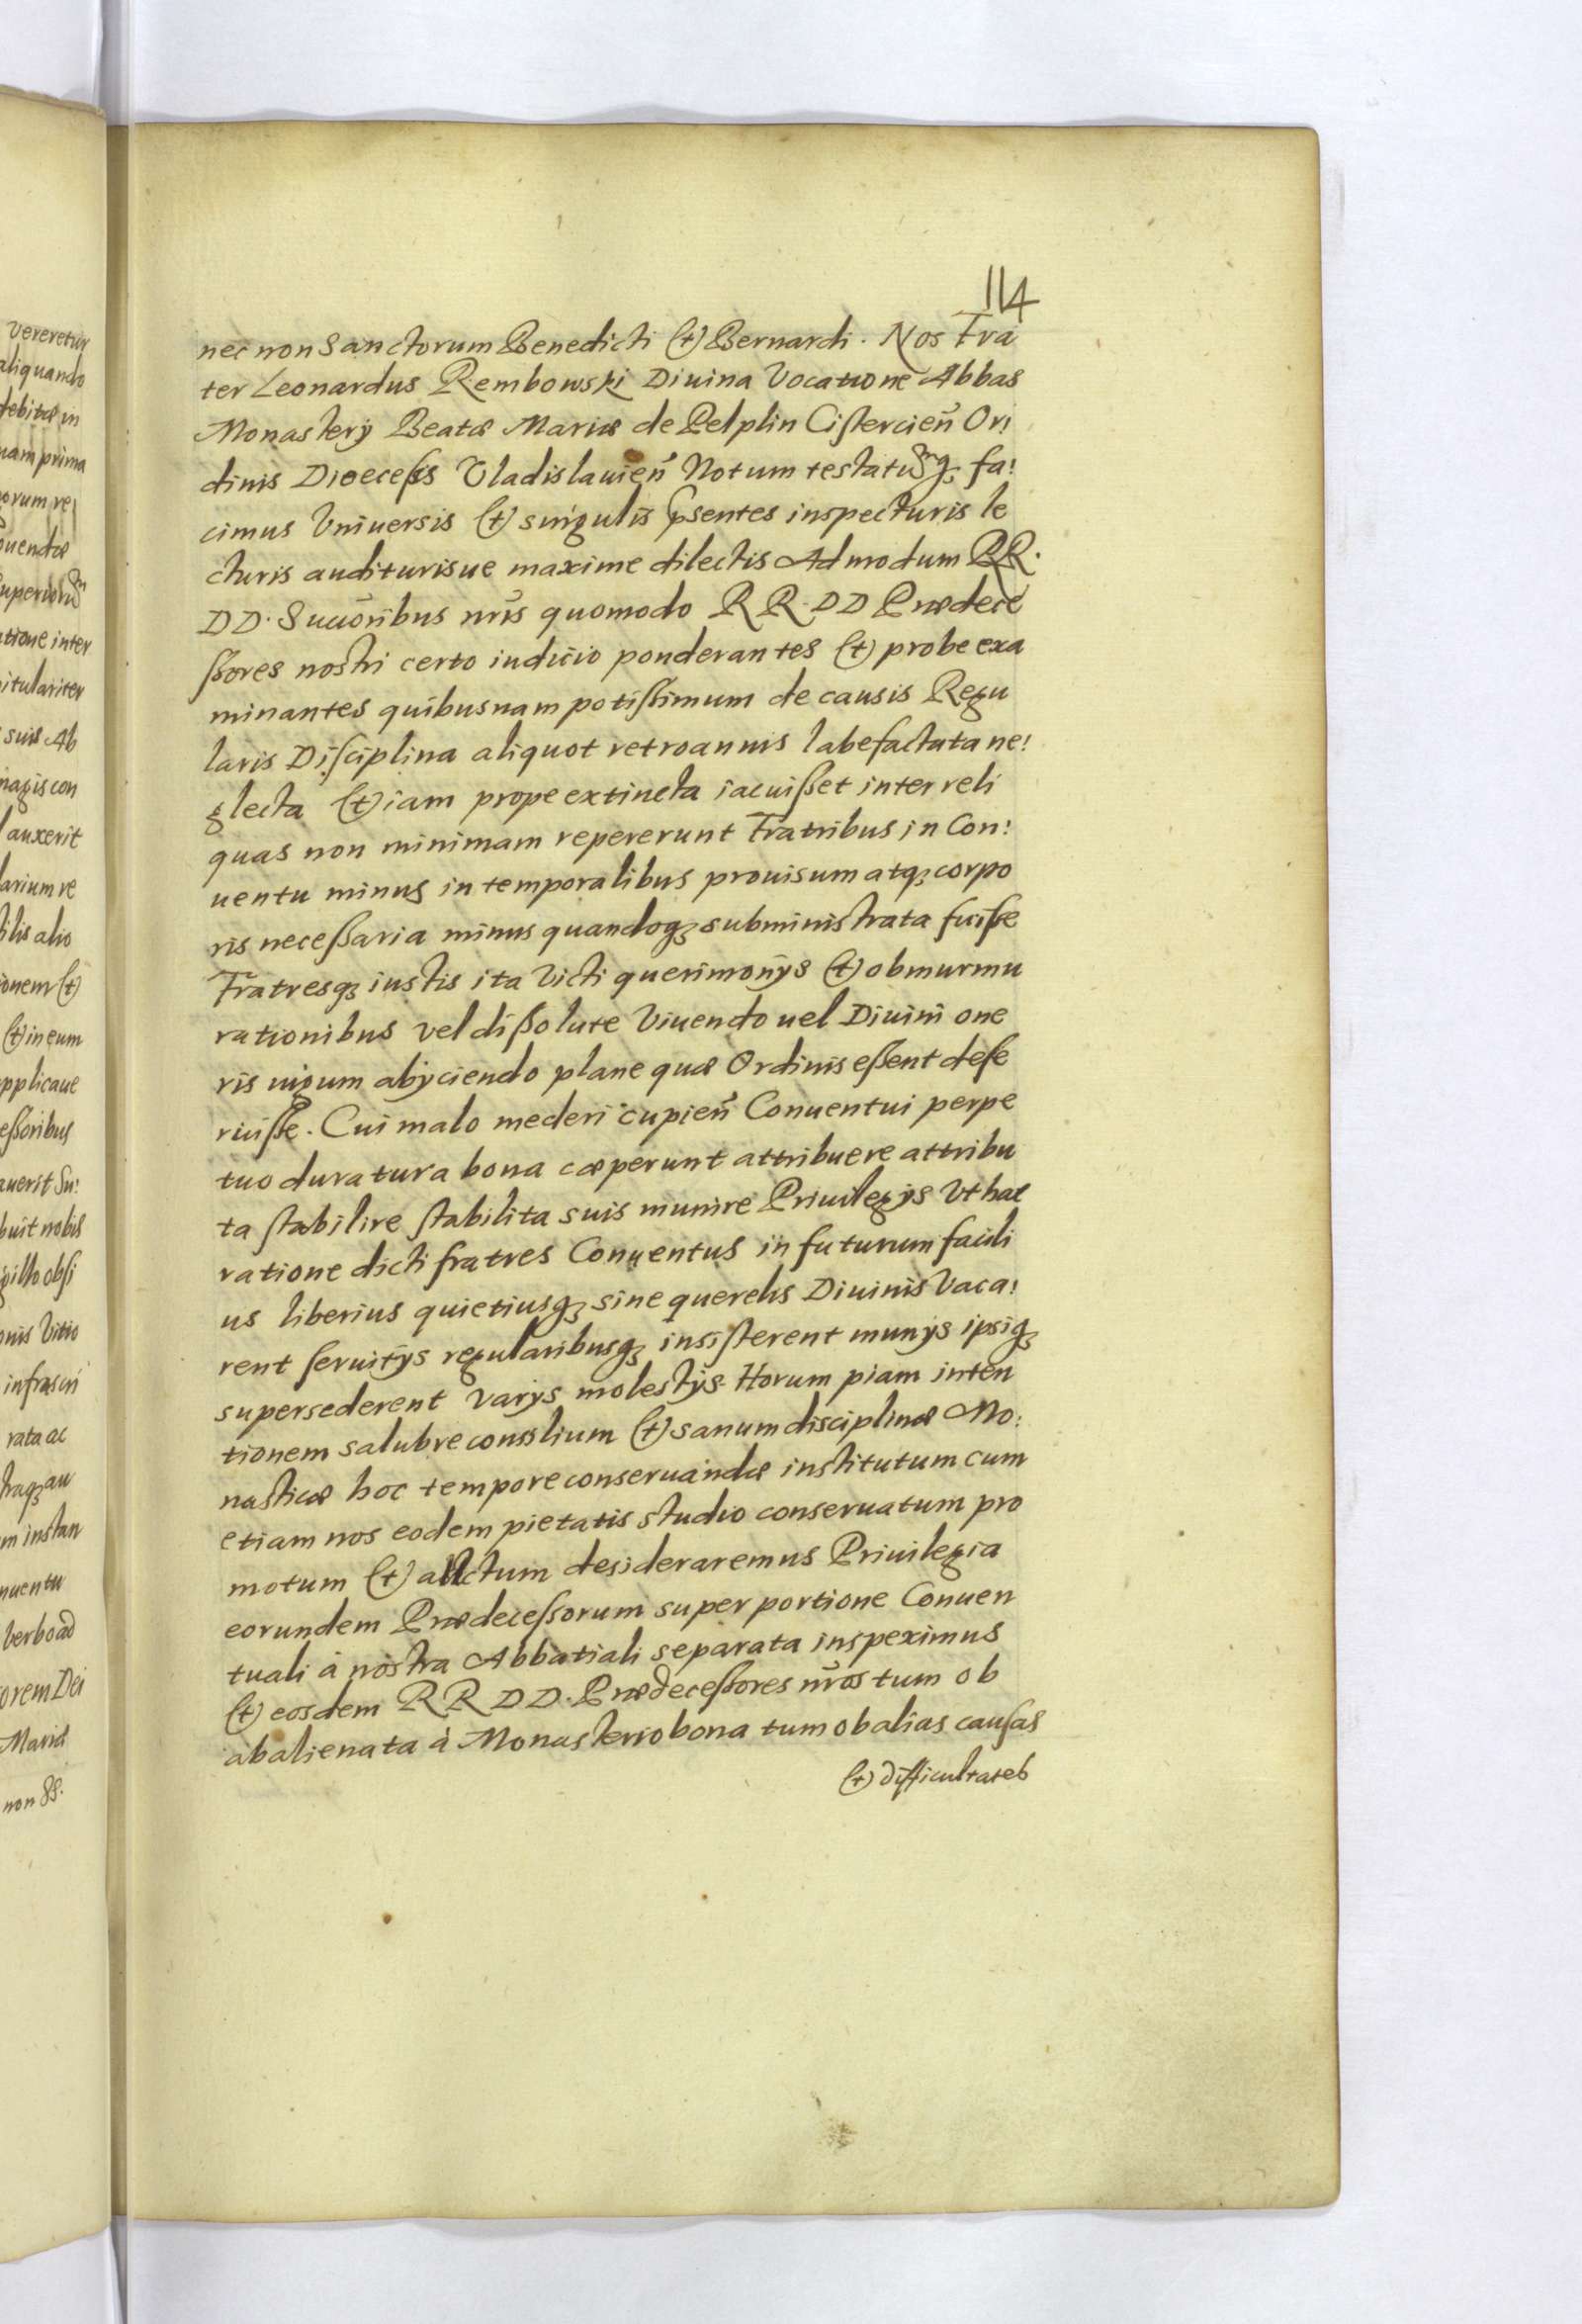 114
nec non Sanctorum Benedicti (et) Bernardi. Nos Fra
ter Leonardus Rembowski Diuina Vocatione Abbas
Monasterÿ Beatæ Mariæ de Pelplin Cistercien̄ Or:
dinis Dioecesis Vladislauien̄ Notum testatūq; fa:
cimus Vniuersis (et) singulis p̄sentes inspecturis le
cturis audituris ue maxime dilectis Admodum RR.
DD. Succōribus nr̄is quomodo RR. DD Prædece
ßores nostri certo iudicio ponderantes (et) probe exa
minantes quibusnam potißimum de causis Regu
laris Disciplina aliquot retroannis labefactata ne:
glecta (et) iam prope extincta iacuißet inter reli
quas non minimam repererunt Fratribus in Con:
uentu minus in temporalibus prouisum atq; corpo
ris neceßaria minus quandoq; subministrata fuiße
Fratresq; iustis ita Victi querimonÿs (et) obmurmu
rationibus vel dißolute Viuendo uel Diuini one
ris iugum abÿciendo plane quæ Ordinis eßent dese
ruiße. Cui malo mederi cupien̄ Conuentui perpe
tuo duratura bona cæperunt attribuere attribu
ta stabilire stabilita suis munire Priuilegÿs Vt hac
ratione dicti fratres Conuentus in futurum facili
us liberius quietiusq; sine querelis Diuinis Vaca:
rent seruitÿs regularibusq; insisterent munÿs ipsiq;
supersederent varÿs molestÿs. Horum piam inten
tionem salubre consilium (et) sanum disciplinæ Mo:
nasticæ hoc tempore conseruandæ institutum cum
etiam nos eodem pietatis studio conseruatum pro
motum (et) auctum desideraremus Priuilegia
eorundem Prædeceßorum super portione Conuen
tuali à nostra Abbatiali separata inspeximus
(et) eosdem RR DD. Prædeceßores nr̄os tum ob
abalienata à Monasterio bona tum ob alias causas
(et) difficultates